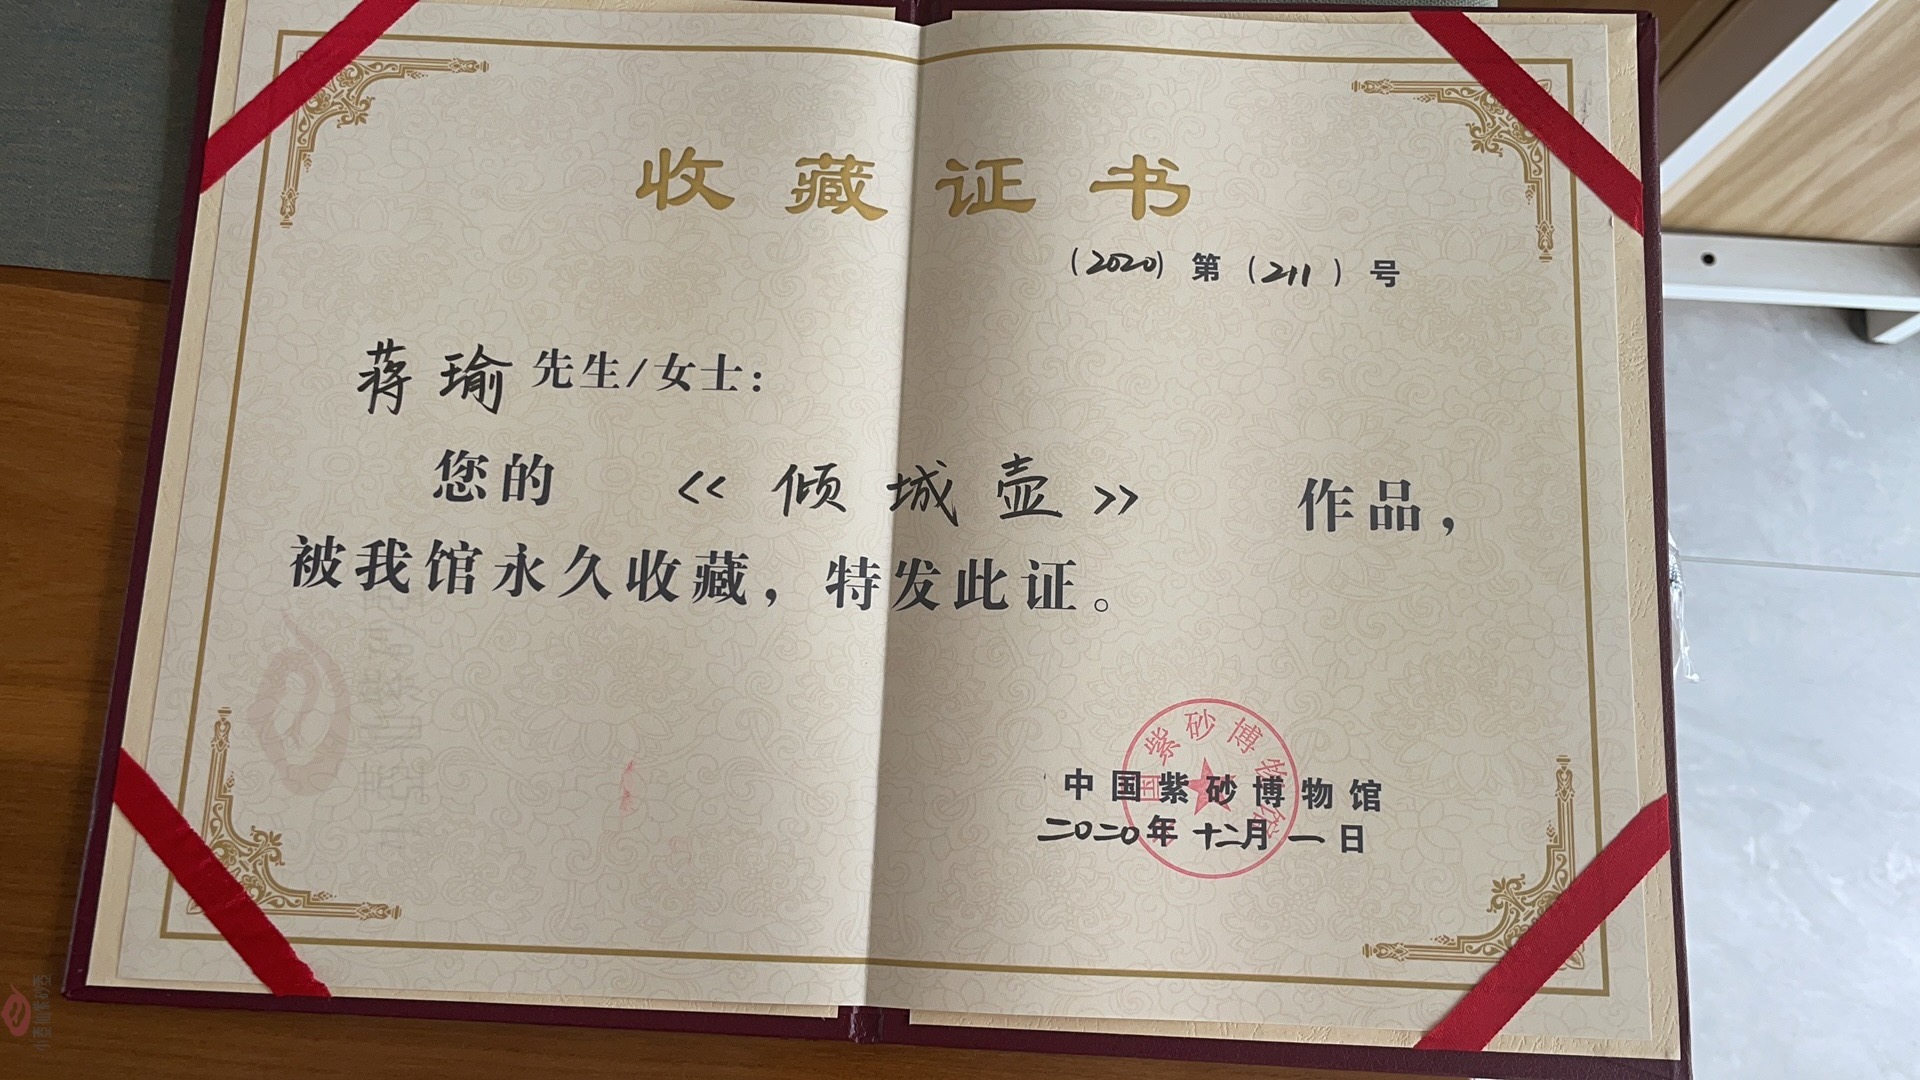 收藏证书
(2020) 第 (211) 号
蒋瑜 先生/女士:
您的 <<倾城壶>> 作品,
被我馆永久收藏,特发此证。
中国紫砂博物馆
二〇二〇年十二月一日
国紫砂博物馆